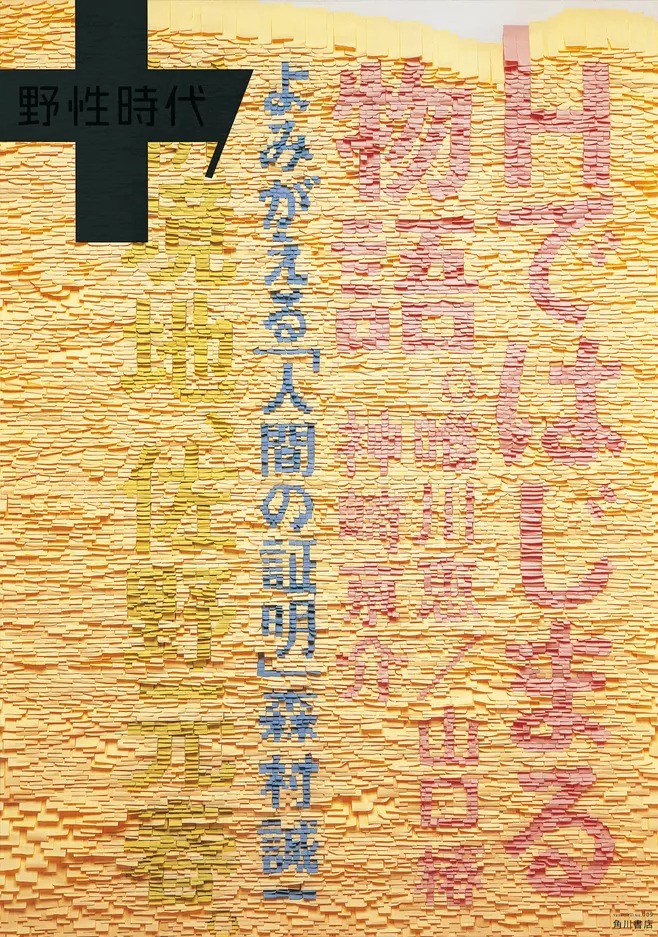 野性時代
Hではじまる
物語。
唯川恵/山口椿
神崎京介
よみがえる「人間の証明」森村誠一
境地、佐野元春
009
角川書店